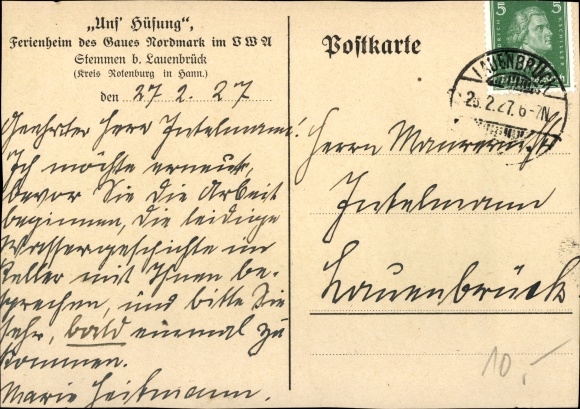 „Uns' Hüsung",
Ferienheim des Gaues Nordmark im V W A
Stemmen b. Lauenbrück
(Kreis Rotenburg in Hann.)
den 27 2. 27
Geehrter Herr Intelmann!
Ich möchte erneut,
bevor Sie die Arbeit
beginnen, die leidige
Wassergeschichte im
Keller mit Ihnen be-
sprechen, und bitte Sie
sehr, bald einmal zu
kommen.
Marie Heitmann.
Postkarte
5 5
LAUENBRÜCK
2.27. 6-7N
Herrn Maurermstr
Intelmann
Lauenbrück
10,-